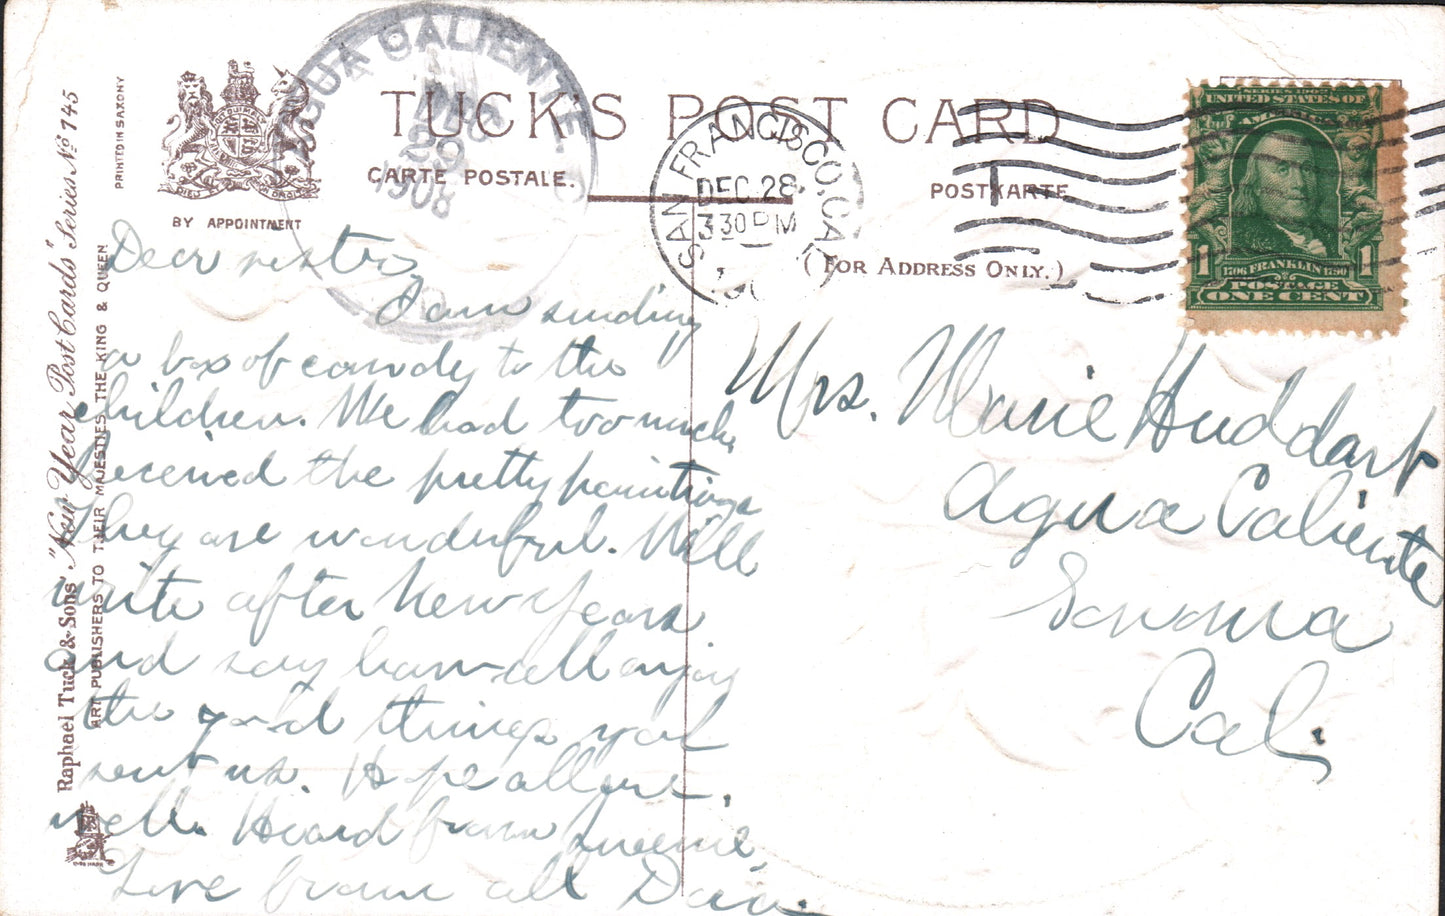 TUCK'S POST CARD
CARTE POSTALE.
POSTKARTE
(FOR ADDRESS ONLY.)
BY APPOINTMENT
DIEU
PRINTED IN SAXONY
Raphael Tuck & Sons' "New Year Post Cards" Series No 745
ART PUBLISHERS TO THEIR MAJESTIES THE KING & QUEEN
AGUA CALIENTE.
29
1908
SAN FRANCISCO, CAL.
DEC 28
3 30 PM
SERIES 1902
UNITED STATES OF
AMERICA
1 1706 FRANKLIN 1790 1
POSTAGE
ONE CENT
Dear sister,
I am sending
a box of candy to the
children. We had too much,
Received the pretty paintings
They are wonderful. Will
write after New Years
and say how all enjoy
the good things you
sent us. Hope all are
well. Heard from
Love from all
Mrs. Marie Huddart
Agua Caliente
Sonoma
Cal.